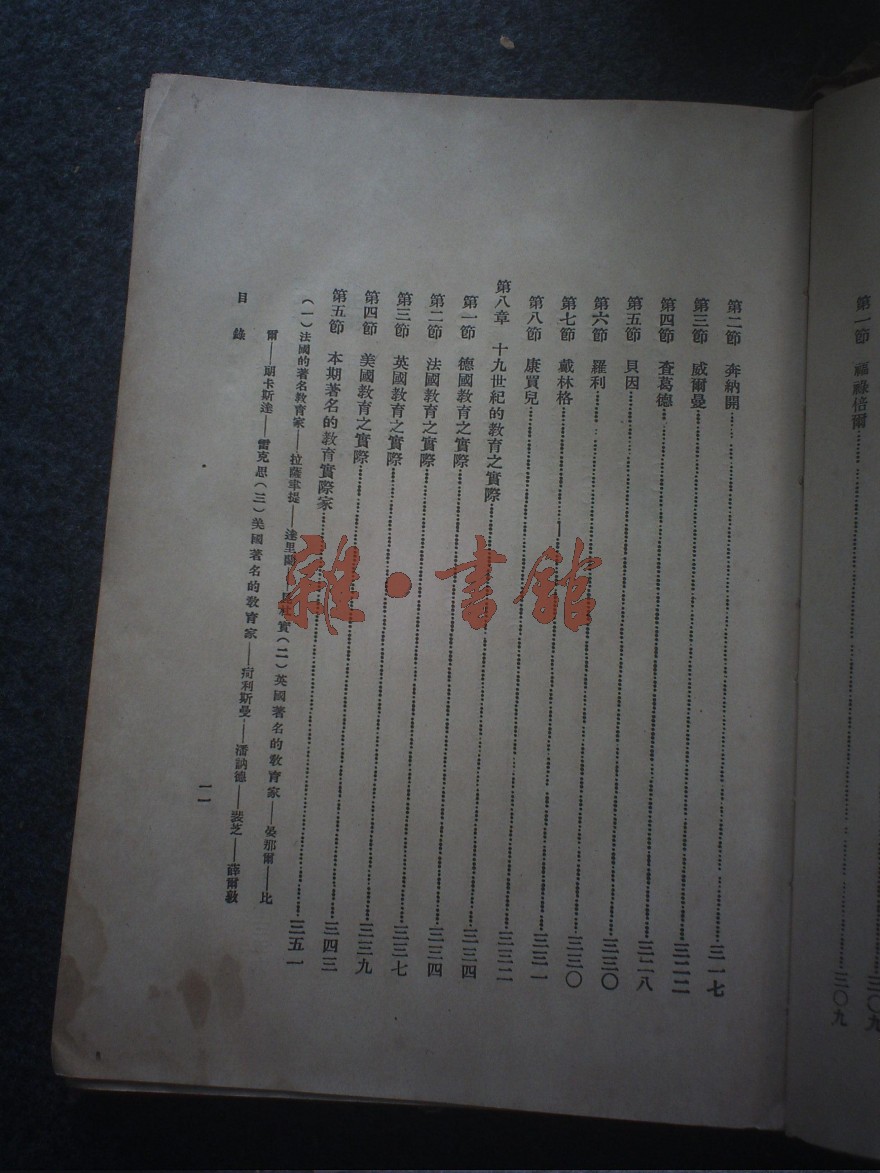 三〇九
第一節 福祿倍爾……三〇九
第二節 奔納開……三一七
第三節 威爾曼……三二二
第四節 查葛德……三二八
第五節 貝因……三三〇
第六節 羅利……三三〇
第七節 戴林格……三三一
第八節 康買兒……三三二
第八章 十九世紀的教育之實際……三三四
第一節 德國教育之實際……三三四
第二節 法國教育之實際……三三七
第三節 英國教育之實際……三三九
第四節 美國教育之實際……三四三
第五節 本期著名的教育實際家……三五一
(一)法國的著名教育家——拉薩聿提——達里 實(二)英國著名的教育家——晏那爾——比
爾——朋卡斯達——雷克思(三)美國著名的教育家——荷利斯曼——潘訥德——裴芝——薛爾敦
目錄
一一
雜·書館